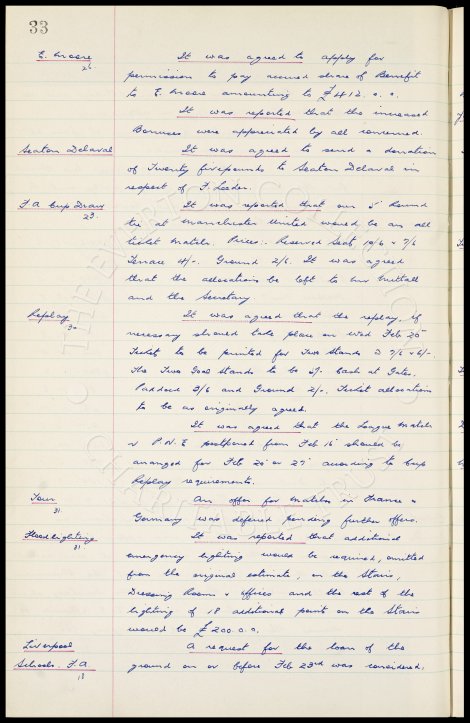 33
E. Moore It was agreed to apply for
26 permission to pay accrued share of Benefit
to E. Moore amounting to £412. 0. 0.
It was reported that the increased
Bonuses were appreciated by all concerned.
Seaton Delaval It was agreed to send a donation
of Twenty five pounds to Seaton Delaval in
respect of F. Leeder.
F.A. Cup Draw It was reported that our 5 Round
23. tie at Manchester United would be an all
ticket match. Prices. Reserved Seats 10/6 & 7/6
Terrace 4/-. Ground 2/6. It was agreed
that the allocations be left to Mr Nuttall
and the Secretary
Replay It was agreed that the replay, if
30 necessary should take place on Wed Feb 25
Tickets to be printed for Two Stands @ 7/6 & 6/-.
The Two Goal Stands to be 5/- Cash at Gates.
Paddock 3/6 and Ground 2/-. Ticket allocation
to be as originally agreed.
It was agreed that the League Match
v P.N.E postponed from Feb 16 should be
arranged for Feb 20 or 27 according to Cup
Replay requirements.
Tour An offer for matches in France &
31 Germany was deferred pending further offers.
Floodlighting It was reported that additional
31 emergency lighting would be required, omitted
from the original estimate, on the Stairs,
Dressing Rooms & offices and the cost of the
lighting of 18 additional points on the Stairs
would be £200. 0. 0.
Liverpool A request for the loan of the
Schools. F.A ground on or before Feb 23rd was considered.
18
THE EVERTON COLLECTION
CHARITABLE TRUST